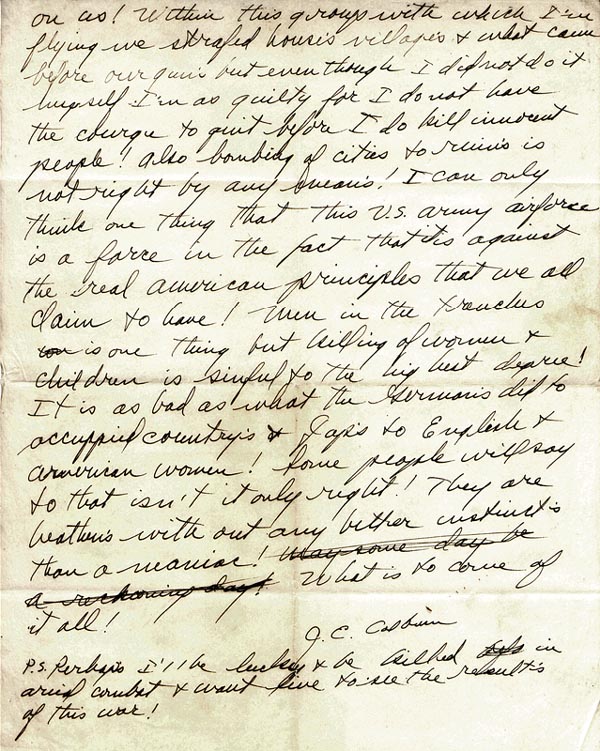 on us! Within this group with which I'm
flying we strafed houses villages & what came
before our guns but even though I did not do it
myself I'm as guilty for I do not have
the courge to quit before I do kill innocent
people! Also bombing of cities to ruins is
not right by any means! I can only
think one thing that this U.S. army airforce
is a farce in the fact that its against
the real american principles that we all
claim to have! Men in the trenches
is one thing but killing of women &
children is sinful to the highest degree!
It is as bad as what the Germans did to
occuppied country's & Japs to English &
american women! Some people will say
to that isn't it only right! They are
heathens with out any bether instinct's
than a maniac! May some day be
a reckoning day! What is to come of
it all!
J.C.
P.S. Perhaps I'll be lucky & be killed in
arial combat & want live to see the results
of this war!